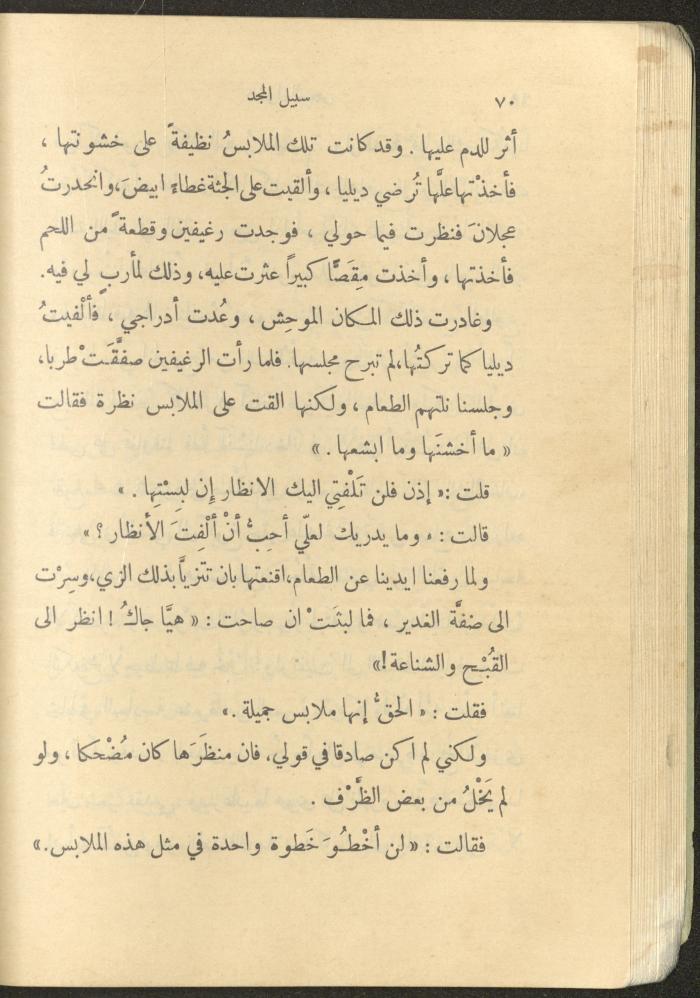 ٧٠ سبيل المجد
أثر للدم عليها . وقد كانت تلك الملابسُ نظيفةً على خشونتها ،
فأخذْتها علَّها تُرضي ديليا ، وألقيت على الجثة غطاءً ابيضَ، وانحدرتُ
عجلانَ فنظرت فيما حولي ، فوجدت رغيفين وقطعةً من اللحم
فأخذتها ، وأخذت مِقَصًّا كبيراً عثرت عليه، وذلك لمأربٍ لي فيه.
وغادرت ذلك المكان الموحِش ، وعُدت أدراجي ، فألْفيتُ
ديليا كما تركتُها، لم تبرح مجلسها. فلما رأت الرغيفين صفَّقَتْ طربا،
وجلسنا نلتهم الطعام ، ولكنها القت على الملابس نظرة فقالت
« ما أخشنَها وما ابشعها . »
قلت : « إذن فلن تَلْفتي اليك الانظار إن لبِسْتِها . »
قالت : « وما يدريك لعلّي أحِبُّ أنْ ألْفِتَ الأنظار ؟ »
ولما رفعنا ايدينا عن الطعام، اقنعتها بان تتزيَّا بذلك الزي، وسِرْت
الى ضفَّة الغدير ، فما لبثَتْ ان صاحت : « هيَّا جاكُ ! انظر الى
القُبْح والشناعة ! »
فقلت : « الحقُّ إنها ملابس جميلة . »
ولكني لم اكن صادقا في قولي، فان منظرَها كان مُضْحكا ، ولو
لم يَخْلُ من بعض الظَّرْف .
فقالت : « لن أخْطُوَ خَطوة واحدة في مثل هذه الملابس. »